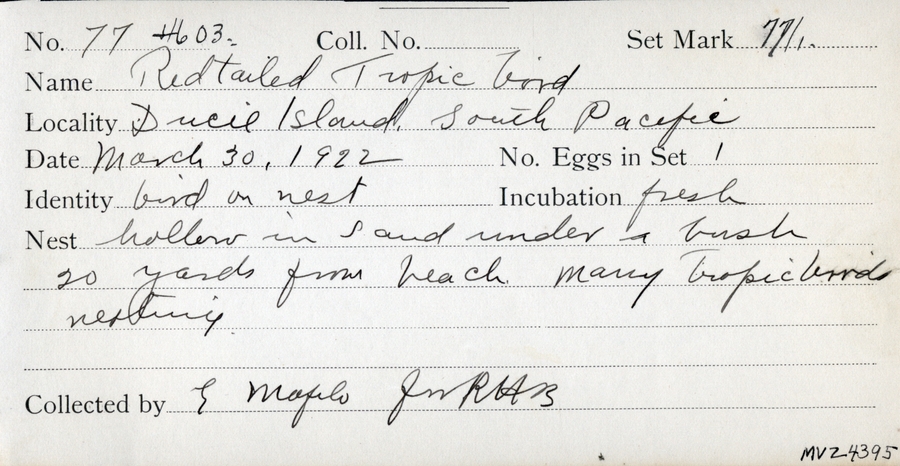 No. 77 #603. Coll. No. Set Mark 77/1.
Name Redtailed Tropic bird
Locality Ducie Island, South Pacific
Date March 30, 1922 No. Eggs in Set 1
Identity bird on nest Incubation fresh
Nest hollow in Sand under a bush
20 yards from beach. Many Tropicbirds
nesting.
Collected by RHB
MVZ4395